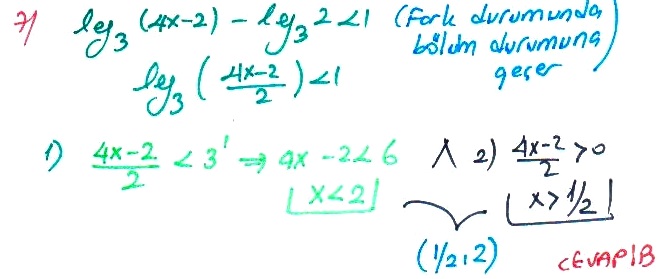 7) log₃(4x-2) - log₃2 < 1 (Fark durumunda
bölüm durumuna
geçer)
log₃((4x-2)/2) < 1
1) (4x-2)/2 < 3¹ ⇒ 4x-2 < 6 ∧ 2) (4x-2)/2 > 0
x < 2 x > 1/2
(1/2, 2) CEVAP/B